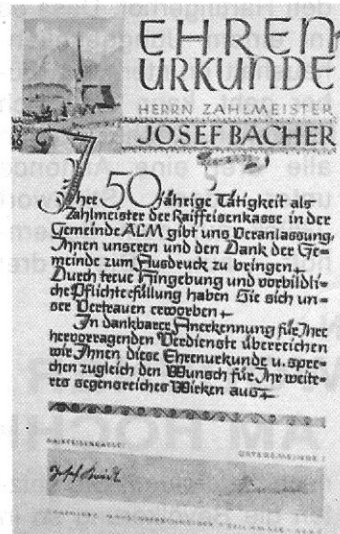 EHREN
URKUNDE
HERRN ZAHLMEISTER
JOSEF BACHER
Ihre 50jährige Tätigkeit als
Zahlmeister der Raiffeisenkasse in der
Gemeinde ALM gibt uns Veranlassung,
Ihnen unseren und den Dank der Ge-
meinde zum Ausdruck zu bringen.
Durch treue Hingebung und vorbildli-
che Pflichterfüllung haben Sie sich un-
ser Vertrauen erworben.
In dankbarer Anerkennung für Ihre
hervorragenden Verdienste überreichen
wir Ihnen diese Ehrenurkunde u. spre-
chen zugleich den Wunsch für Ihr weite-
res segensreiches Wirken aus.
RAIFFEISENKASSE:
ORTSGEMEINDE: